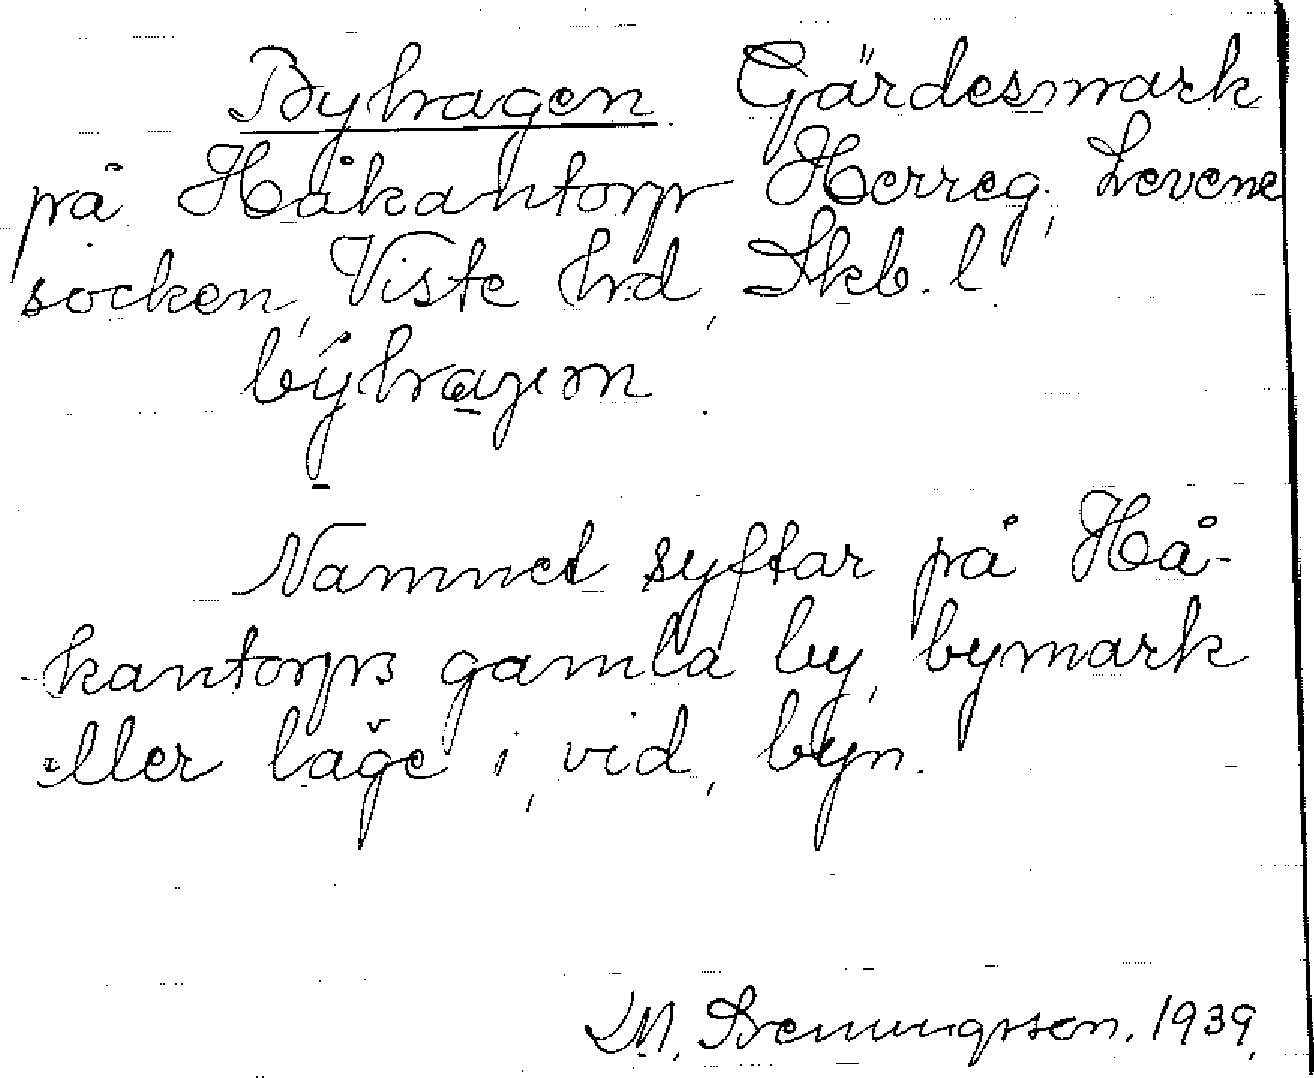 Byhagen Gärdesmark
på Håkantorp Herreg., Levene
socken, Viste hrd, Skb. l.
býhagen
Namnet syftar på Hå-
kantorps gamla by, bymark
eller läge i, vid, byn.
1939.